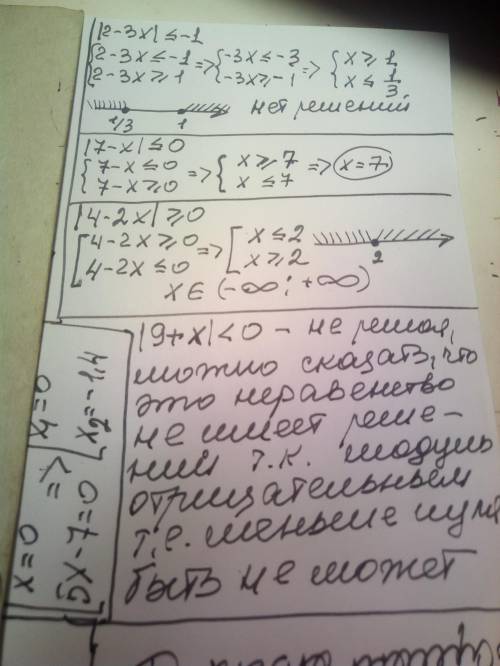 |2-3x| ≤ -1
{2-3x ≤ -1 => {-3x ≤ -3 => {x ≥ 1
{2-3x ≥ 1 {-3x ≥ -1 {x ≤ 1/3.
1/3 1 нет решений
|7-x| ≤ 0
{7-x ≤ 0 => {x ≥ 7 => x=7
{7-x ≥ 0 {x ≤ 7
|4-2x| ≥ 0
[4-2x ≥ 0 => [x ≤ 2
[4-2x ≤ 0 [x ≥ 2 2
x ∈ (-∞; +∞)
|9+x| < 0 - не решая,
можно сказать, что
это неравенство
не имеет реше-
ний т.к. модуль
отрицательным
т.е. меньше нуля
быть не может
[x=0 => [x₁=0
[5x-7=0 [x₂=-1,4